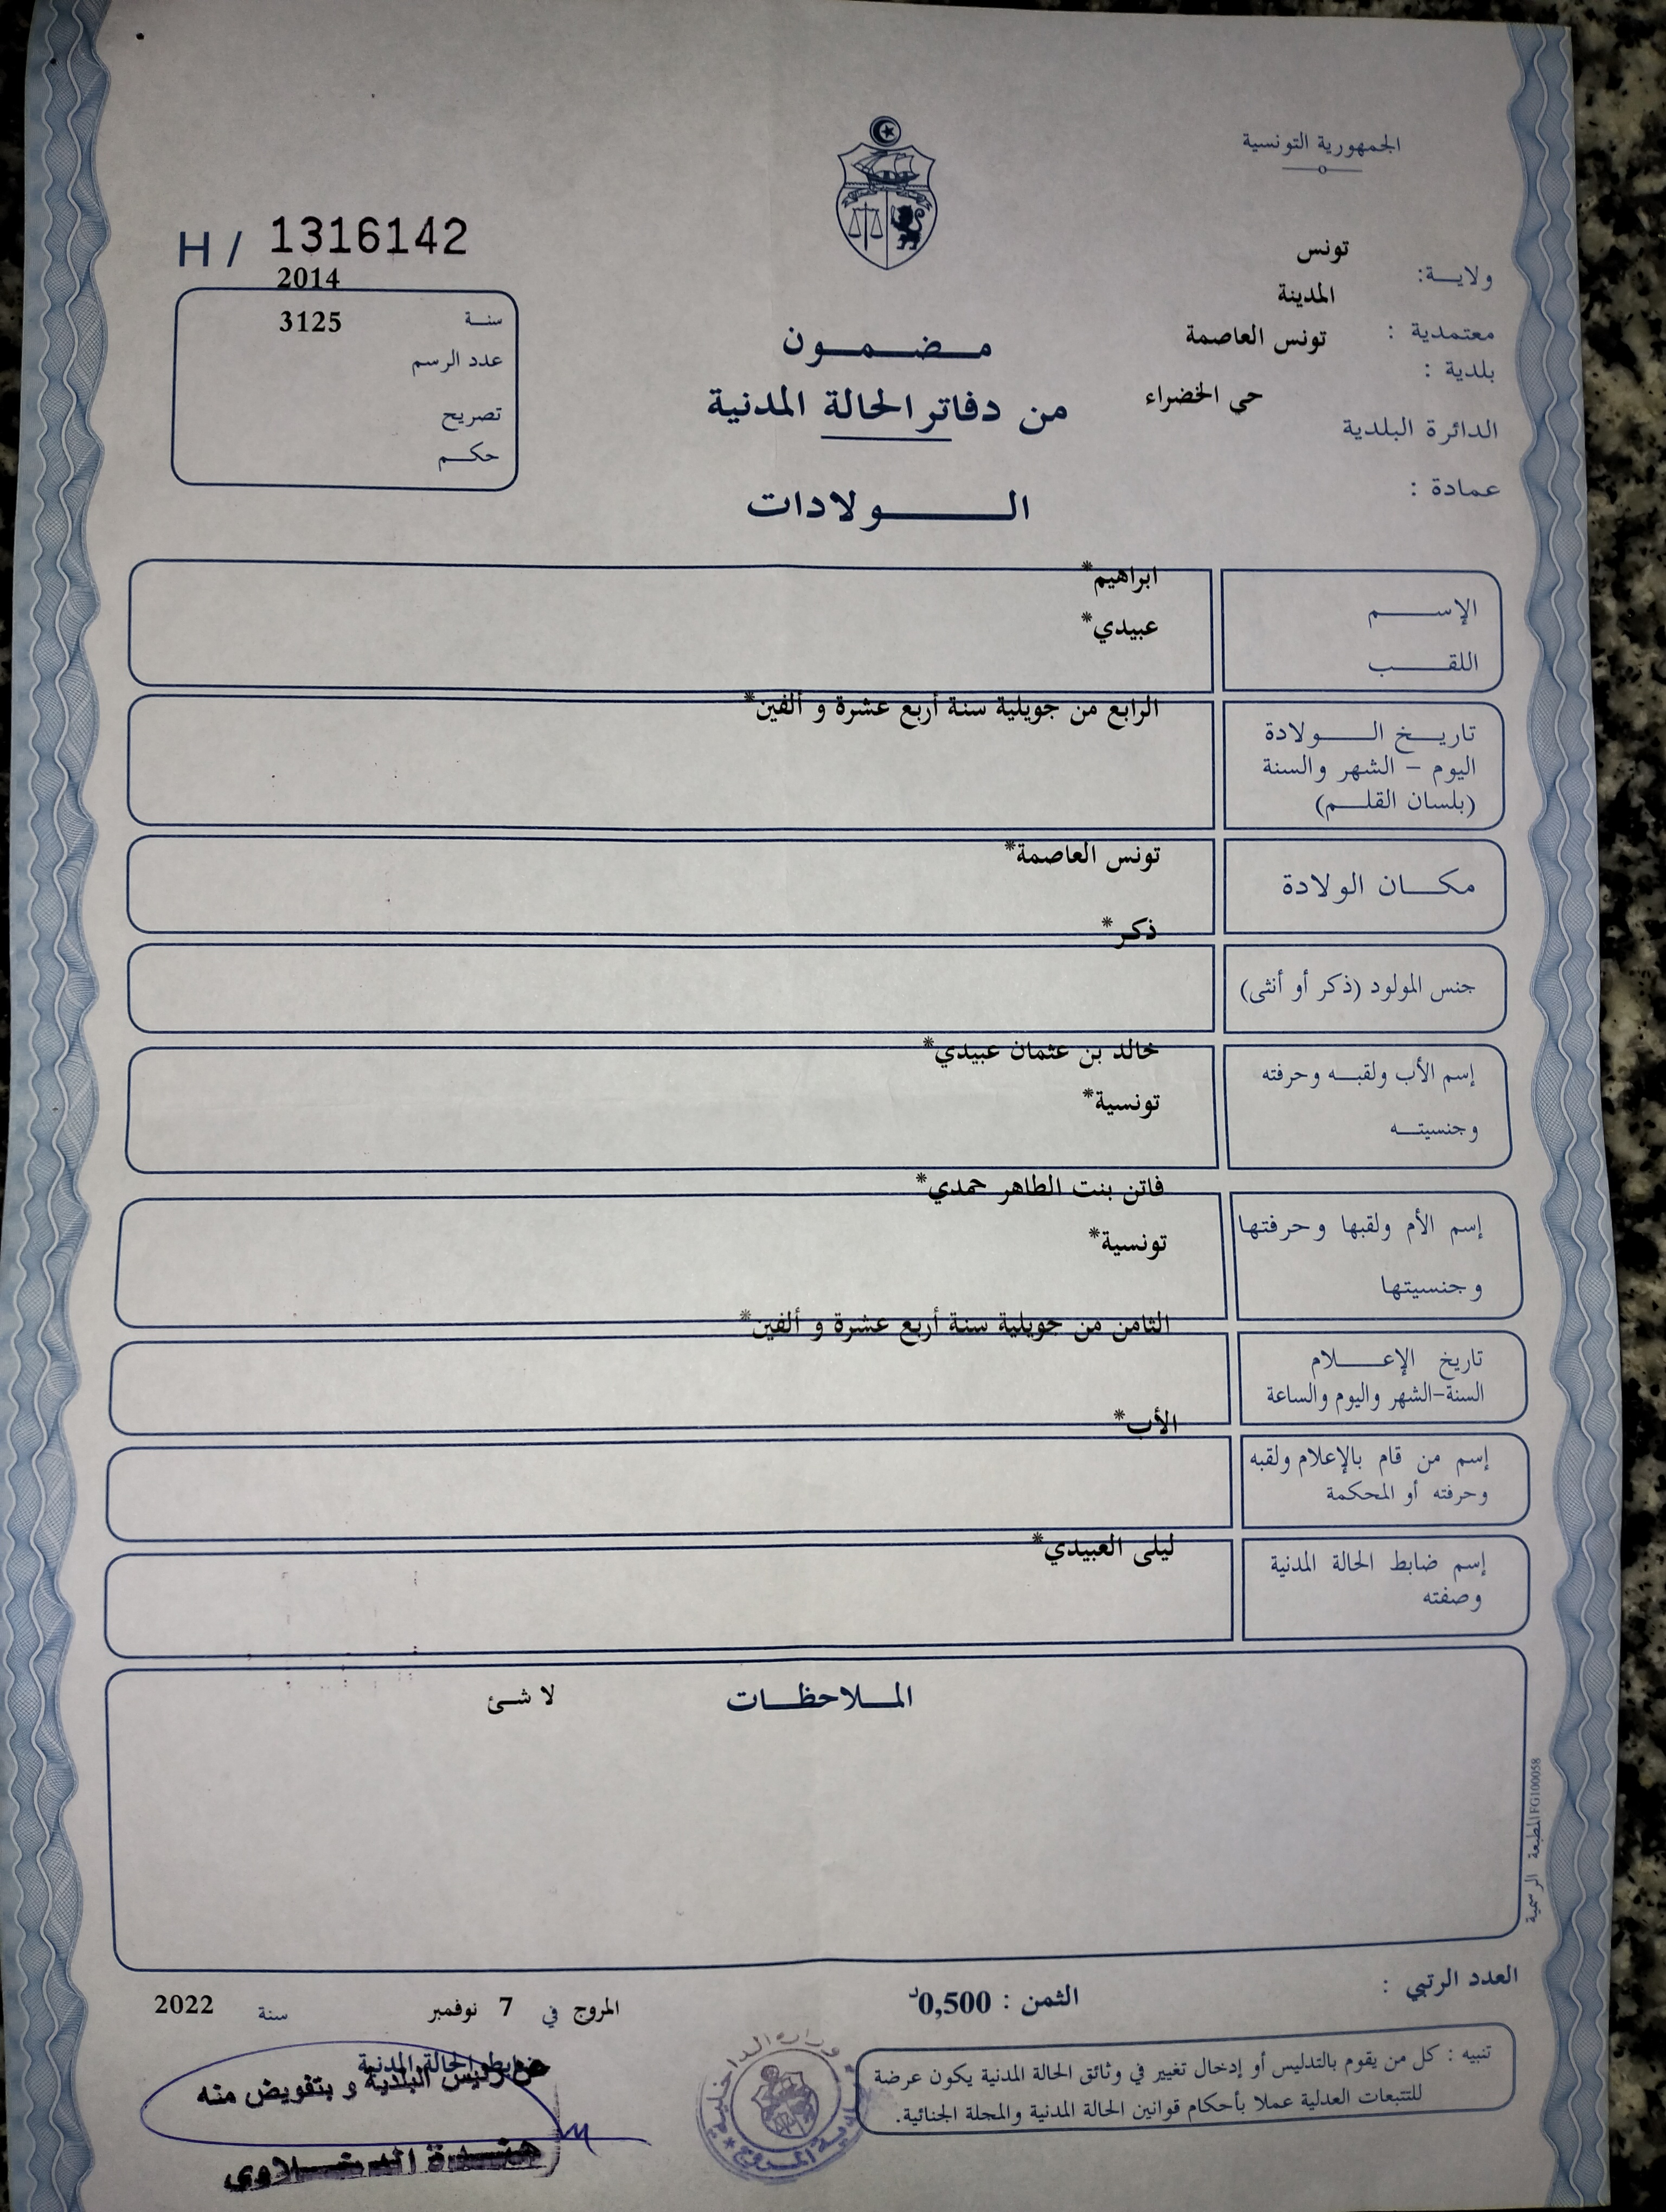 الجمهورية التونسية
H / 1316142
ولايـــة: تونس
معتمدية : المدينة
بلدية : تونس العاصمة
الدائرة البلدية حي الخضراء
عمادة :
2014
سنـة 3125
عدد الرسم
تصريح
حكـم
مـضـمـون
من دفاتر الحالة المدنية
الـــولادات
الإســـم ابراهيم*
اللقـــب عبيدي*
تاريـخ الـــولادة الرابع من جويلية سنة أربع عشرة و ألفين*
اليوم – الشهر والسنة
(بلسان القلـم)
مكـــان الولادة تونس العاصمة*
جنس المولود (ذكر أو أنثى) ذكر*
إسم الأب ولقبـه وحرفته خالد بن عثمان عبيدي*
وجنسيتـه تونسية*
إسم الأم ولقبها وحرفتها فاتن بنت الطاهر حمدي*
وجنسيتها تونسية*
تاريخ الإعـــلام الثامن من جويلية سنة أربع عشرة و ألفين*
السنة-الشهر واليوم والساعة
إسم من قام بالإعلام ولقبه الأب*
وحرفته أو المحكمة
إسم ضابط الحالة المدنية ليلى العبيدي*
وصفته
المـلاحظـات لا شئ
المطبعة الرسمية FG100058
العدد الرتبي :
الثمن : 0,500د
المروج في 7 نوفمبر سنة 2022
تنبيه : كل من يقوم بالتدليس أو إدخال تغيير في وثائق الحالة المدنية يكون عرضة
للتتبعات العدلية عملا بأحكام قوانين الحالة المدنية والمجلة الجنائية.
ضابط الحالة المدنية
عن رئيس البلدية و بتفويض منه
وزارة الداخلية
بلدية المروج